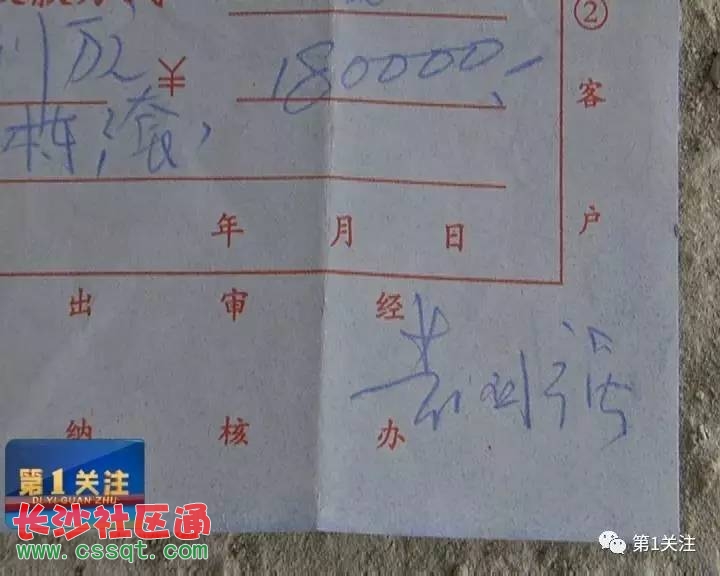 ②
¥ 180000.-
栋,套,
年 月 日
客户
出纳
审核
经办
第1关注
DI YI GUAN ZHU
长沙社区通
www.cssqt.com
第1关注